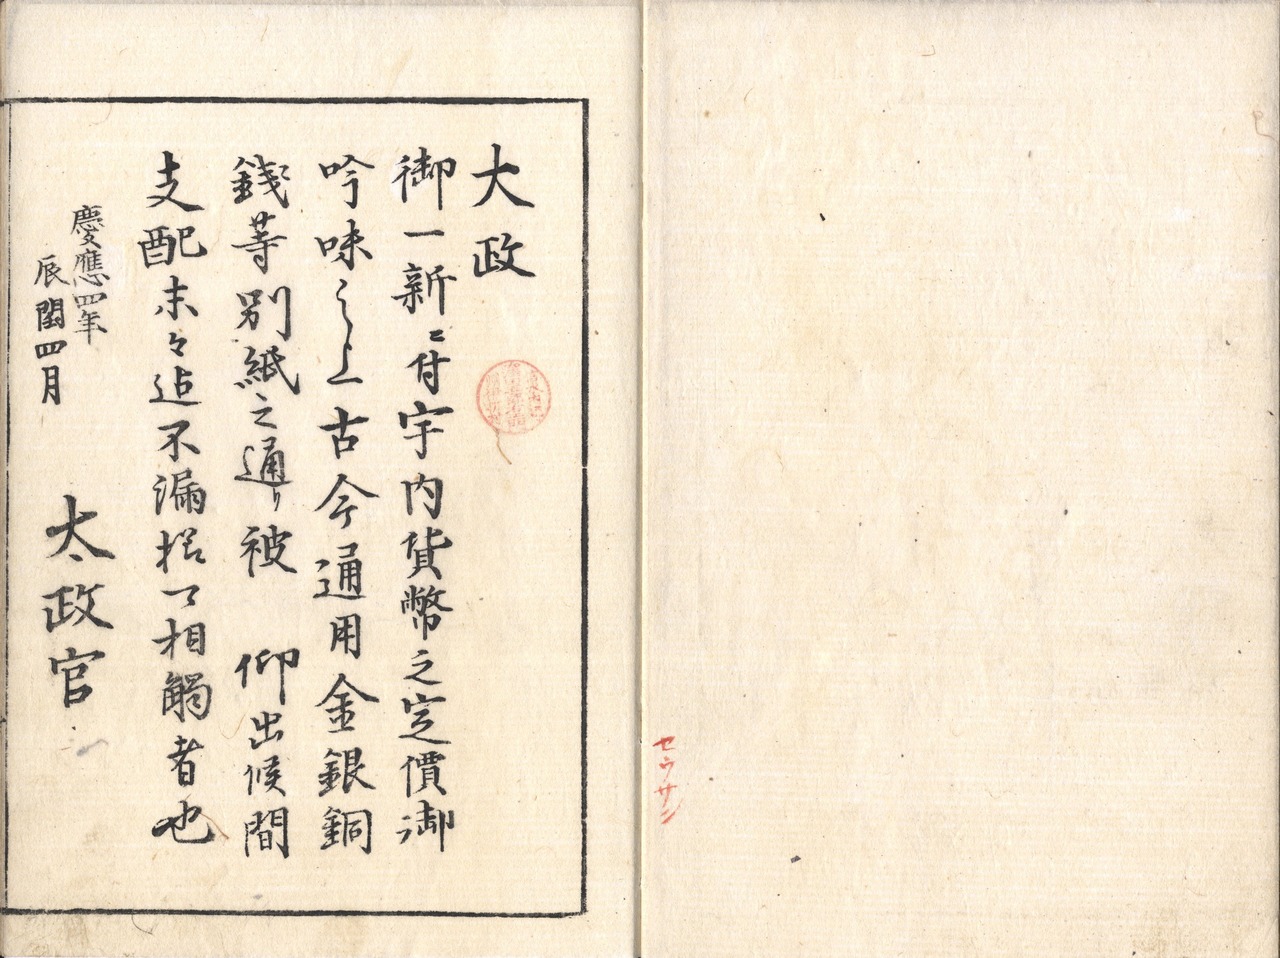 セウサン
大政
御一新ニ付宇内貨幣之定價御
吟味之上古今通用金銀銅
錢等別紙之通り被　仰出候間
支配末々迠不漏様可相觸者也
慶應四年
辰閏四月
太政官